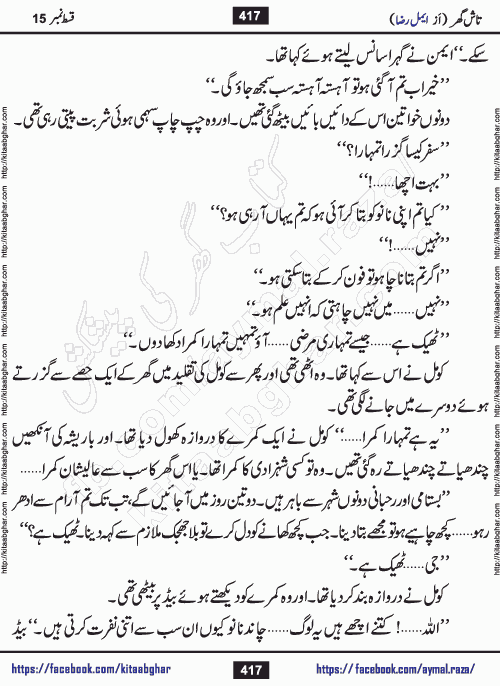 تاش گھر (از ایمل رضا)
417
قسط نمبر 15
سکے۔‘‘ ایمن نے گہرا سانس لیتے ہوئے کہا تھا۔
’’خیر اب تم آ گئی ہو تو آہستہ آہستہ سب سمجھ جاؤ گی۔‘‘
دونوں خواتین اس کے دائیں بائیں بیٹھ گئی تھیں۔ اور وہ چپ چاپ سہمی ہوئی شربت پیتی رہی تھی۔
’’سفر کیسا گزرا تمہارا؟‘‘
’’بہت اچھا......!‘‘
’’کیا تم اپنی نانو کو بتا کر آئی ہو کہ تم یہاں آ رہی ہو؟‘‘
’’نہیں......!‘‘
’’اگر تم بتانا چاہو تو فون کر کے بتا سکتی ہو۔‘‘
’’نہیں...... میں نہیں چاہتی کہ انہیں علم ہو۔‘‘
’’ٹھیک ہے...... جیسے تمہاری مرضی ...... آؤ تمہیں تمہارا کمرا دکھا دوں۔‘‘
کومل نے اس سے کہا تھا۔ وہ اٹھی تھی اور پھر سے کومل کی تقلید میں گھر کے ایک حصے سے گزرتے
ہوئے دوسرے میں جانے لگی تھی۔
’’یہ ہے تمہارا کمرا......‘‘ کومل نے ایک کمرے کا دروازہ کھول دیا تھا۔ اور باریشہ کی آنکھیں
چندھیاتے چندھیاتے رہ گئی تھیں۔ وہ تو کسی شہزادی کا کمرا تھا۔ یا اس گھر کا سب سے عالیشان کمرا......
’’بسامی اور رحبانی دونوں شہر سے باہر ہیں۔ دو تین روز میں آ جائیں گے، تب تک تم آرام سے ادھر
رہو...... کچھ چاہیے ہو تو مجھے بتا دینا۔ جب کچھ کھانے کو دل کرے تو بلا جھجک ملازم سے کہہ دینا۔ ٹھیک ہے؟‘‘
’’جی...... ٹھیک ہے۔‘‘
کومل نے دروازہ بند کر دیا تھا۔ اور وہ کمرے کو دیکھتے ہوئے بیڈ پر بیٹھی تھی۔
’’اللہ......! کتنے اچھے ہیں یہ لوگ...... چاند نانو کیوں ان سب سے اتنی نفرت کرتی ہیں۔‘‘ بیڈ
https://facebook.com/kitaabghar
417
https://facebook.com/aymal.raza/
http://kitaabghar.com
http://kitaabghar.com
http://kitaabghar.com
http://kitaabghar.com
http://kitaabghar.com
http://kitaabghar.com
http://kitaabghar.com
http://kitaabghar.com
http://kitaabghar.com
http://kitaabghar.com
http://kitaabghar.com
http://kitaabghar.com
کتاب گھر کی پیشکش